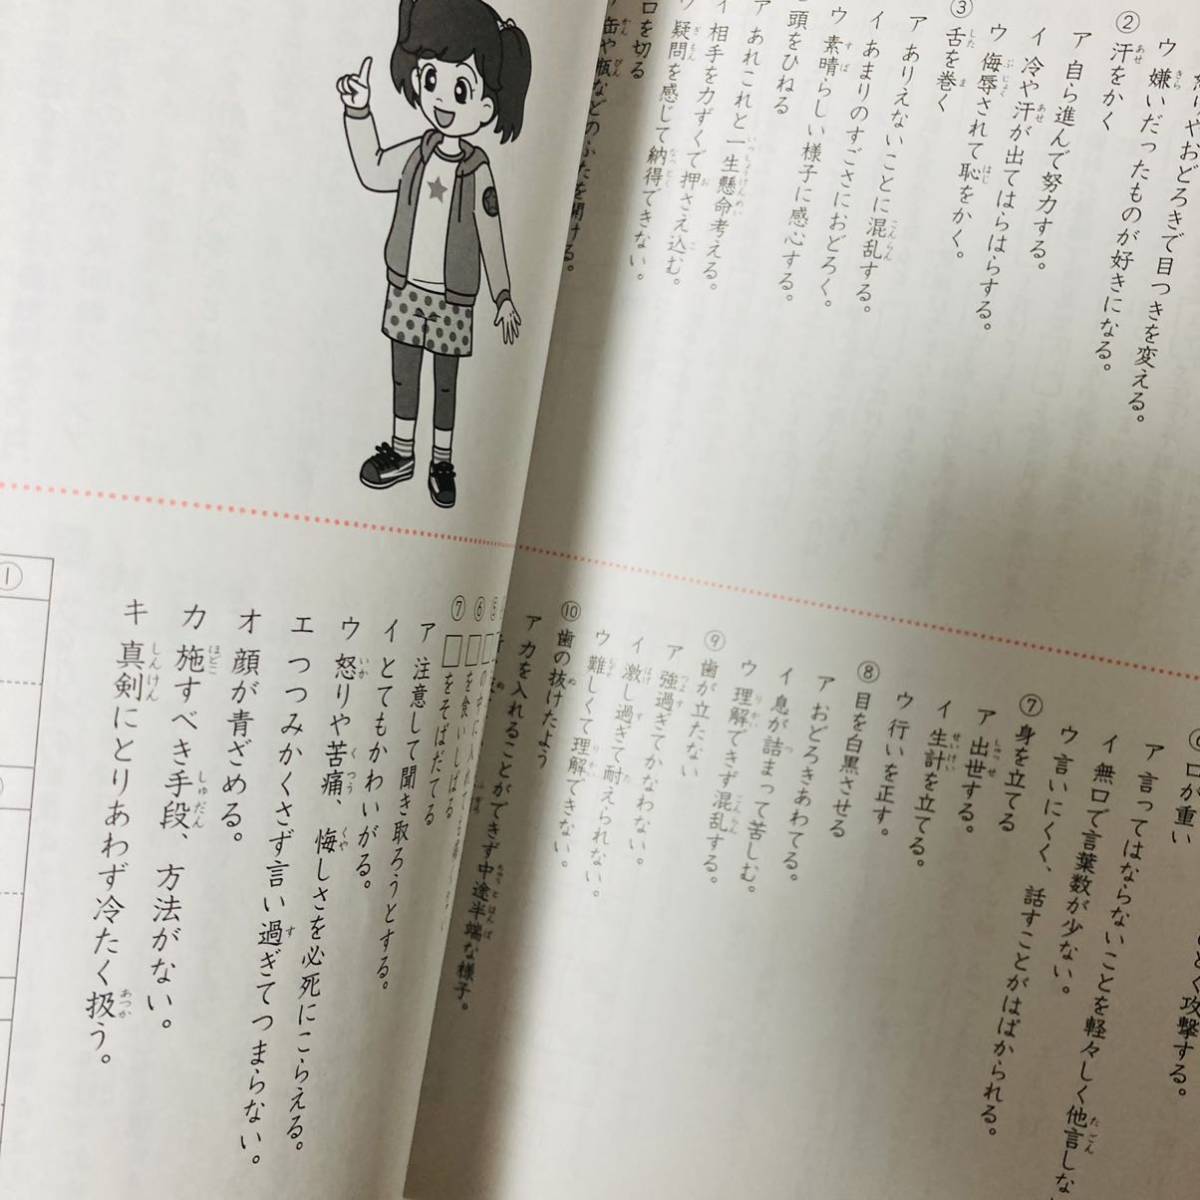 ウ 嫌いだったものが好きになる。
② 汗をかく
ア 自ら進んで努力する。
イ 冷や汗が出てはらはらする。
ウ 侮辱されて恥をかく。
③ 舌を巻く
ア ありえないことに混乱する。
イ あまりのすごさにおどろく。
ウ 素晴らしい様子に感心する。
頭をひねる
ア あれこれと一生懸命考える。
イ 相手を力ずくで押さえ込む。
ウ 疑問を感じて納得できない。
口を切る
ア 缶や瓶などのふたを開ける。
口が重い
ア 言ってはならないことを軽々しく他言しな
イ 無口で言葉数が少ない。
ウ 言いにくく、話すことがはばかられる。
⑦ 身を立てる
ア 出世する。
イ 生計を立てる。
ウ 行いを正す。
⑧ 目を白黒させる
ア おどろきあわてる。
イ 息が詰まって苦しむ。
ウ 理解できず混乱する。
⑨ 歯が立たない
ア 強過ぎてかなわない。
イ 激し過ぎて耐えられない。
ウ 難しくて理解できない。
⑩ 歯の抜けたよう
ア 力を入れることができず中途半端な様子。
⑤
⑥ □を食いしばる
⑦ □をそばだてる
ア 注意して聞き取ろうとする。
イ とてもかわいがる。
ウ 怒りや苦痛、悔しさを必死にこらえる。
エ つつみかくさず言い過ぎてつまらない。
オ 顔が青ざめる。
カ 施すべき手段、方法がない。
キ 真剣にとりあわず冷たく扱う。
①